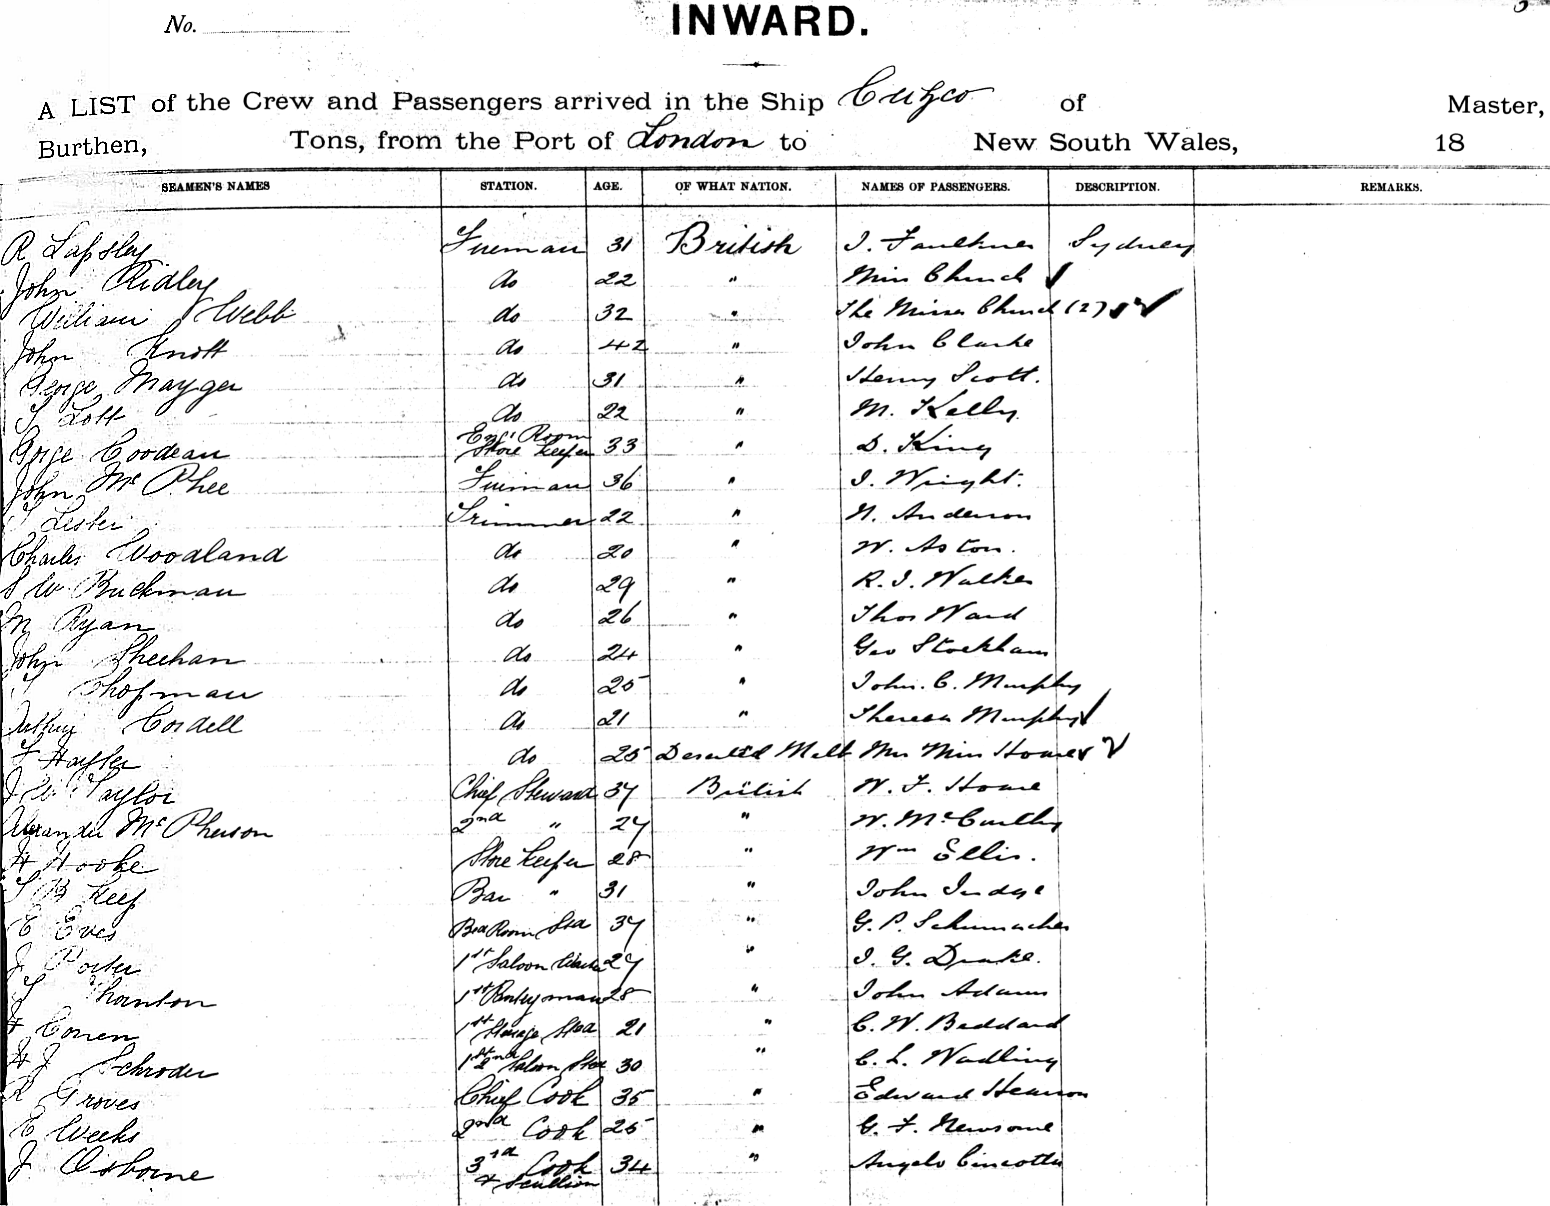 No.
INWARD.
A LIST of the Crew and Passengers arrived in the Ship Cuzco of Master,
Burthen, Tons, from the Port of London to New South Wales, 18
SEAMEN'S NAMES STATION. AGE. OF WHAT NATION. NAMES OF PASSENGERS. DESCRIPTION. REMARKS.
R Lapsley Fireman 31 British J. Faulkner Sydney
John Ridley do 22 " Miss Church
William Webb do 32 " The Misses Church (2)
John Knott do 42 " John Clarke
George Mayger do 31 " Henry Scott.
T Lott do 22 " M. Kelly
Gorge Goodean Engr Room Store Keeper 33 " D. King
John Mc Phee Fireman 36 " J. Wright.
T Lester Trimmer 22 " N. Anderson
Charles Woodland do 20 " W. Aston.
S W Buckman do 29 " R. J. Walker
M Ryan do 26 " Thos Ward
John Sheehan do 24 " Geo Stockham
T Chopman do 25 " John. C. Murphy
Arthur Cordell do 21 " Theresa Murphy
F Hayter do 25 Deserted Melb Mrs Miss Howe
J W Taylor Chief Steward 37 British W. F. Howe
Alexander Mc Pherson 2nd " 27 " W. McCarthy
H Hooke Store Keeper 28 " Wm Ellis.
T B Keep Bar " 31 " John Judge
E Eves Bed Room Std 37 " G. P. Schumacher
J Porter 1st Saloon 27 " J. G. Drake.
T Thornton 1st Pantryman 28 " John Adams
H Coven 1st Steerage Std 21 " C. W. Beddard
H J Schroder 1st 2nd Saloon Std 30 " C. L. Wadling
R Groves Chief Cook 35 " Edward Hearson
E Weeks 2nd Cook 25 " G. F. Newsome
J Osborne 3rd Cook & Scullion 34 " Angelo Cincotta